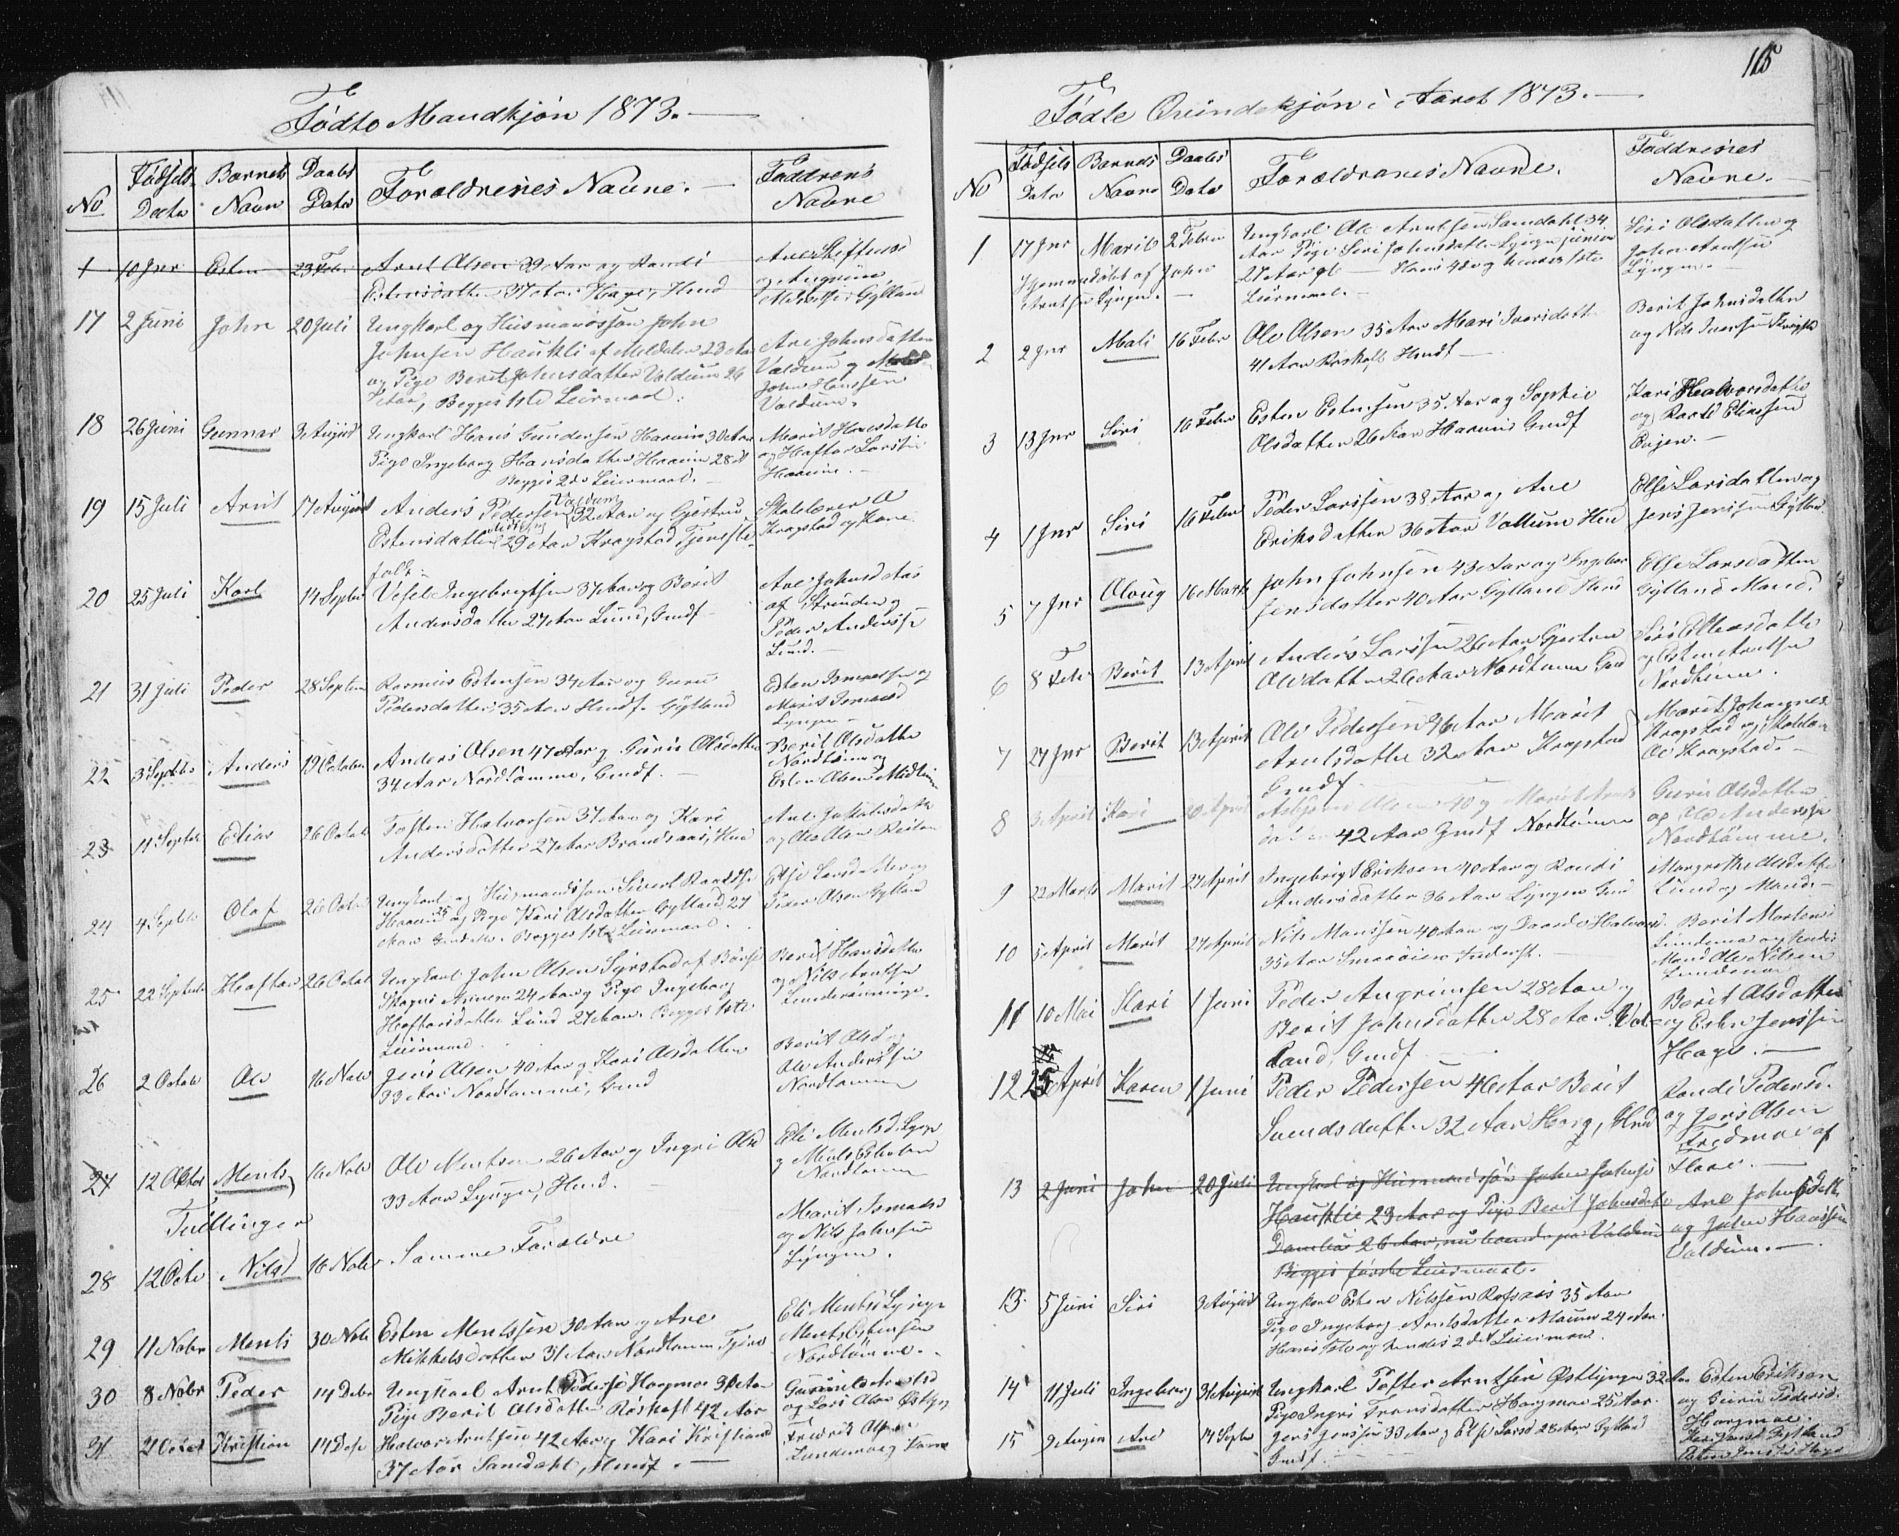 115
Fødte Mandkjøn 1873.
No
Fødsels Dato
Barnets Navn
Daabs Dato
Forældrenes Navne.
Faddrens Navne
1 10 Jnr Esten 23 Febr Arnt Olsen 39 Aar og Randi
Estensdatter 37 Aar Hage, Hmd
Gylland
17 2 Juni John 20 Juli Ungkarl og Husmandssøn John
Johnsen Haukli af Meldalen 23 Aar
og Pige Berit Johnsdatter Valdum 26
Aar, Begges 1ste Leiermaal.
Ane Johnsdatter
Valdum og
John Hanssen
Valdum.
18 26 Juni Gunnar 3 August Ungkarl Hans Gundersen Haaum 30 Aar
Pige Ingeborg Hansdatter Haaum 28 A
Begges 2det Leiermaal.
Marit
og Haftor Larsen
Haaum.
19 15 Juli Arnt 17 August Anders Pedersen Valdum 32 Aar og Gjertrud
Estensdatter 29 Aar Kragstad Tjeneste
folk.
Skolelærer O
Kragstad og Kone
20 25 Juli Karl 14 Septbr Vesel Ingebrigtsen 37 Aar og Berit
Andersdatter 27 Aar Lund, Gmdf
Ane Johnsdatter
af Strinden og
Peder Anderssen
Lund.
21 31 Juli Peder 28 Septem Rasmus Estensen 34 Aar og Guru
Pedersdatter 35 Aar Hmdf. Gylland
Esten
Marit
Lyngen
22 3 Septbr Anders 19 October Anders Olsen 47 Aar og Guru Olsdatter
34 Aar Nordtømme, Gmdf.
Berit Olsdatter
Nordtømme og
Esten Olsen Midtlyng
23 11 Septbr Elias 26 Octob Toften Halvorsen 37 Aar og Kari
Andersdatter 27 Aar Brandsaas, Hmd
og Ole Olsen
24 4 Septbr Olaf 26 Octbr Ungkarl og Husmandssøn Sivert
Haaum 25 og Pige Kari Olsdatter Gylland 27
Aar Begges 1ste Leiermaal.
Else Larsdatter og
Peder Olsen Gylland
25 22 Septbr Haftor 26 Octob Ungkarl John Olsen Syrstad af Børse
24 Aar og Pige Ingeborg
Haftorsdatter Lund 27 Aar. Begges 1ste
Leiermaal.
Berit Hansdatter
og Nils Arntsen
26 2 Octob Ole 16 Nobr Jens Olsen 40 Aar og Kari Olsdatter
33 Aar Nordtømme, Gmd
Berit Olsd og
Ole Anderssen
Nordtømme
27 12 Octob Ments 16 Nobr Ole Mentsen 26 Aar og Ingri Olsd
33 Aar Lyngen, Hmd.
Eli Mentsd Lynge
og Ments Estensen
Nordtømme
Tvillinger
28 12 Octo Nils 16 Nobr Samme Forældre
Marit
og Nils Johnsen
Lyngen.
29 11 Nobr Ments 30 Nobr Esten Mentssen 30 Aar og Ane
Mikkelsdatter 31 Aar Nordtømme
Eli Mentsd Lynge
Ments Estensen
Nordtømme.
30 8 Nobr Peder 14 Debr Ungkarl Arnt Pederse Hagmoe
Pige Berit Olsdatter Røskaft 42 Aar
og Lars Olsen Østlyng
31 21 Octob Kristian 14 Debr Halvor Arntsen 42 Aar og Kari Kristiansd
37 Aar Samdahl, Hmdf.
Fredrik Olsen
Fødte Qvindekjøn i Aaret 1873.
No
Fødsels Dato
Barnets Navn
Daabs Dato
Forældrenes Navne.
Faddrenes Navne.
1 17 Jnr Marit 2 Febru Ungkarl Ole Arntsen Samdahl 34
Aar Pige Siri Johnsdatter Lyngen
27 Aar gl Hans 4de og hendes 1ste
Leiermaal.
Hjemmedøbt af John
Arntsen Lyngen.
Siri Olsdatter og
John Arntsen
Lyngen.
2 2 Jnr Mali 16 Febr Ole Olsen 35 Aar Mari Iversdatt
41 Aar Røskaft, Hmdf
Berit Johnsdatter
og Nils Iversen
3 13 Jnr Siri 16 Febr Esten Estensen 35 Aar og Sophie
Olsdatter 26 Aar Haaum Gmdf
Kari Halvorsdatter
og Elisesen
Evjen.
4 1 Jnr Siri 16 Febr Peder Larssen 38 Aar og Ane
Eriksdatter 36 Aar Valdum Hmd
Else Larsdatter og
Jens Jenssen Gylland
5 7 Jnr Oloug 16 Marts John Johnsen 43 Aar og Ingebor
Jensdatter 40 Aar Gylland Hmd
Else Larsdatter
Gylland Mand.
6 8 Febr Berit 13 April Anders Larssen 26 Aar Gjertru
Olsdatter 26 Aar Nordtømme Gmd
Siri Ellensdatter
og Esten Arntsen
Nordtømme.
7 27 Jnr Berit 13 April Ole Pedersen 46 Aar Marit
Arntsdatter 32 Aar Kragstad
Gmdf
Marit Johannes
Kragstad og Skolelær
Ole Kragstad.
8 3 April Kari 20 April Asbjørn Olsen 40 og Marit Arnts
datter 42 Aar Gmdf Nordtømme
Guru Olsdatter
og Ole Anderssen
Nordtømme.
9 22 Marts Marit 27 April Ingebrigt Eriksen 40 Aar og Randi
Andersdatter 36 Aar Lyngen Gmd
Margrethe Olsdatter
Lund og Mand.
10 5 April Marit 27 April Nils Monssen 40 Aar og Halvors
35 Aar Smaaøien Inderst.
Berit Mortens
Lundemo og hendes
Mand Ole Nilsen
Lundemo
11 10 Mai Kari 1 Juni Peder Angrimsen 28 Aar og
Berit Johnsdatter 28 Aar
Land, Gmdf
Berit Olsdatter
og Esten Jenssen
Hage.
12 25 April Karen 1 Juni Peder Pedersen 46 Aar Berit
Svendsdatter 32 Aar Horg, Hmd
Randi Pedersd.
og Jens Olsen
Fredmoe af
Horg.
13 2 Juni John 20 Juli Ungkarl og Husmandssøn John Johnse
Hauklie 23 Aar og Pige Berit Johnsdatte
26 Aar, nu boende paa Valdum
Begges første Leiermaal.
Ane Johnsdatte
og John Hanssen
Valdum.
13 5 Juni Siri 3 August Ungkarl Esten Nilssen Rosaas 35 Aar
Pige Ingeborg Arntsdatter Moum 24 Aar
Hans 1ste og hendes 2det Leiermaal.
14 11 Juli Ingeborg 31 August Ungkarl Tofter Arntsen Østlyngen 32 Aar
Pige Ingri Fransdatter Hagmoe 25 Aar.
Esten Eriksen
og Guru Pedersd.
Hagmoe.
15 9 August Ane 14 Septbr Jens Jenssen 33 Aar og Else Larsd 28 Aar Gylland
Gmdf.